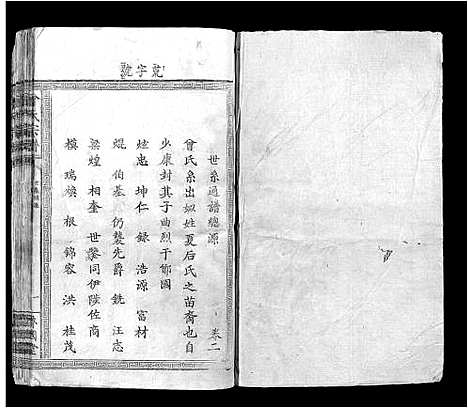 世系通譜總源 卷二
曾氏系出姒姓夏后氏之苗裔也自
少康封其子曲烈于鄫國
炫忠 坤仁 錄 浩源 富材
焜 伯基 仍襲先爵 銑 汪志
梁煌 相奎 世 同伊陞佐商
模 瑞 根 錦容 洪 桂茂